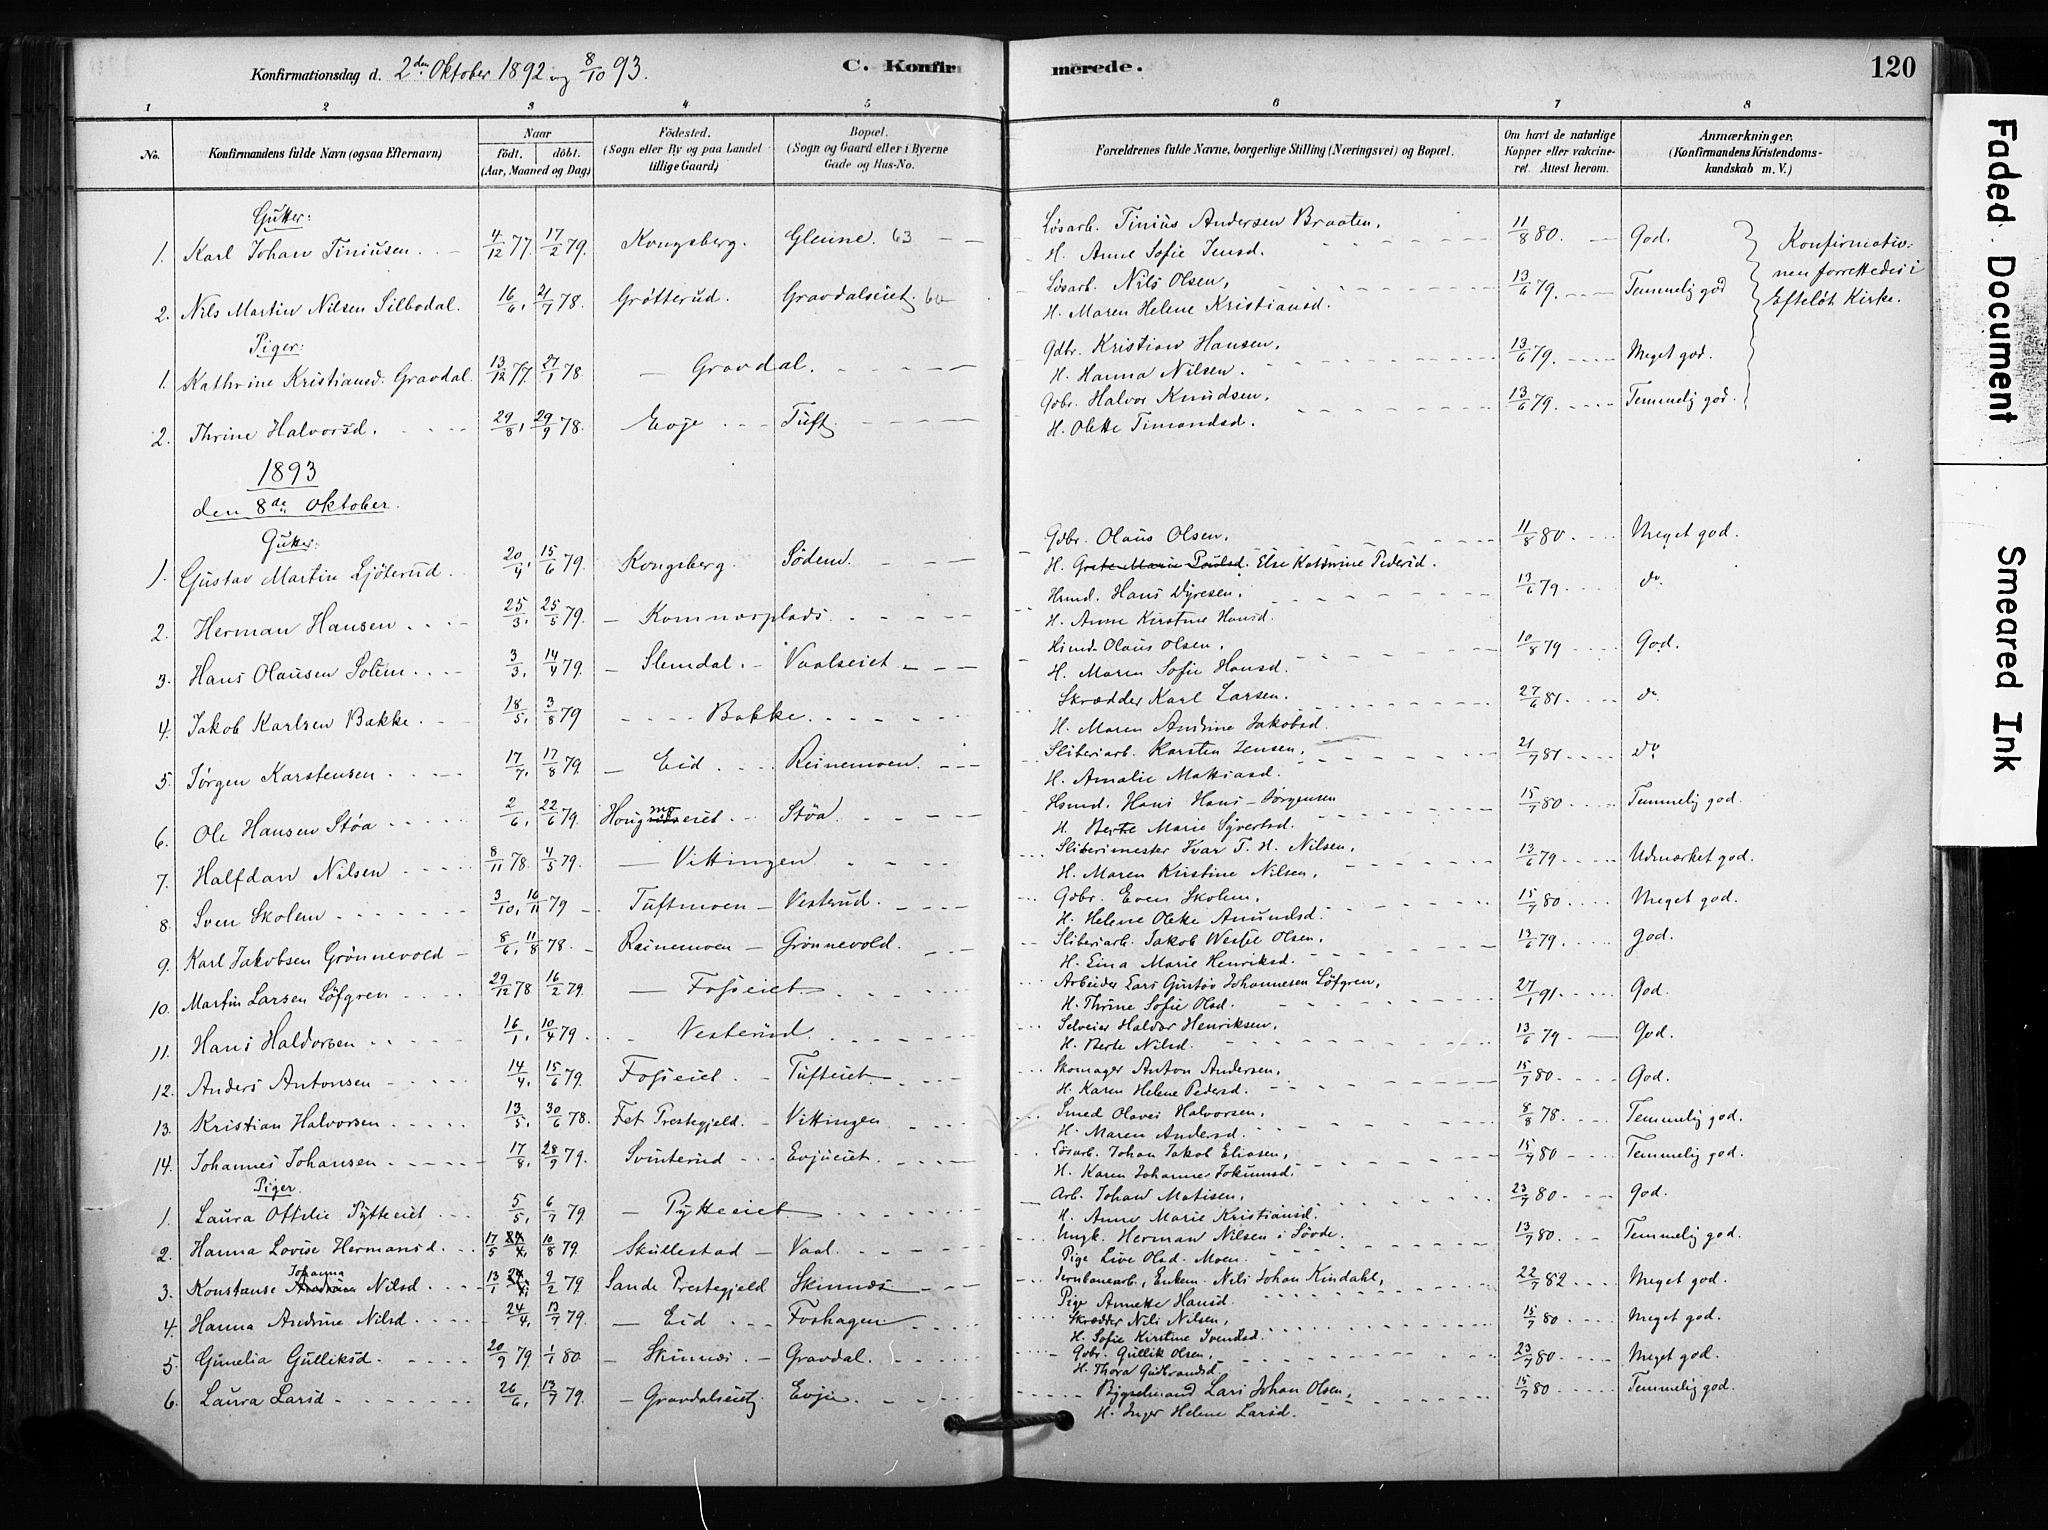 Konfirmationsdag d. 2den Oktober 1892 og 8/10 93.
C. Konfirmerede.
120
1 2 3 4 5 6 7 8
No.
Konfirmandens fulde Navn (ogsaa Efternavn)
Naar
født. døbt.
(Aar, Maaned og Dag)
Fødested.
(Sogn eller By og paa Landet
tillige Gaard)
Bopæl.
(Sogn og Gaard eller i Byerne
Gade og Hus-No.
Forældrenes fulde Navne, borgerlige Stilling (Næringsvei) og Bopæl.
Om havt de naturlige
Kopper eller vakcine-
ret. Attest herom.
Anmærkninger.
(Konfirmandens Kristendoms-
kundskab m. V.)
Gutter:
1. Karl Johan Tiniusen 4/12 77. 17/2 79. Kongsberg. Glenne. 63 Løsarb. Tinius Andersen Braaten, 11/8 80. God.
H. Anne Sofie Jensd.
Konfirmatio-
nen forrettedes i
Efteløt Kirke.
2. Nils Martin Nilsen Silbodal. 16/6, 21/7 78. Grøtterud. Gravdalseiet. 60 Løsarb. Nils Olsen, 13/6 79. Temmelig god
H. Maren Helene Kristiansd.
Piger:
1. Kathrine Kristiansd. Gravdal. 13/12 77. 27/1 78. Gravdal. Gdbr. Kristian Hansen, 13/6 79. Meget god.
H. Hanna Nilsen.
2. Thrine Halvorsd. 29/8, 29/9 78. Evje Tuft Gdbr. Halvor Knudsen, 13/6 79. Temmelig god.
H. Olette Timandsd.
1893
den 8de Oktober.
Gutter:
1. Gustav Martin Ljøterud. 20/4, 15/6 79. Kongsberg. Sødem. Gdbr. Olaus Olsen, 11/8 80. Meget god.
H. Grete Marie Poulsd. Else Kathrine Pedersd.
2. Herman Hansen 25/3, 25/5 79. Komnæsplads. Hsmd. Hans Dyresen, 13/6 79. do
H. Anne Kirstine Hansd.
3. Hans Olausen Solem 3/3, 14/4 79. Slemdal. Vaalseiet Olaus Olsen, 10/8 79 God.
H. Maren Sofie Hansd.
4. Jakob Karlsen Bakke. 18/5, 3/8 79 Bakke. Skrædder Karl Larsen. 27/6 81. do
H. Maren Andrine Jakobsd.
5. Jørgen Karstensen 17/7, 17/8 79. Eid. Reinemoen. Sliberiarb. Karsten Jensen, 21/7 81. do
H. Amalie Mattiasd.
6. Ole Hansen Støa 2/6, 22/6 79. Hougmoeiet Støa Hsmd. Hans Hans-Jørgensen 15/7 80. Temmelig god.
H. Berte Marie Syvertsd.
7. Halfdan Nilsen 8/11 78. 4/5 79. Vittingen Sliberimester Ivar T. H. Nilsen, 13/6 79. Udmærket god.
H. Maren Kirstine Nilsen,
8. Sven Skolem 3/10, 16/11 79 Tuftmoen Vesterud. Gdbr. Even Skolem, 15/7 80. Meget god.
H. Helene Oleke Amundsd.
9. Karl Jakobsen Grønnevold 8/6, 11/8 78. Reinemoen Grønnevold. Sliberiarb. Jakob Westye Olsen, 13/6 79. God.
H. Eina Marie Henriksd.
10. Martin Larsen Løfgren 29/12 78 16/2 79. Fosseiet Arbeider Lars Gustav Johannesen Løfgren, 27/1 91. God.
H. Thrine Sofie Olsd.
11. Hans Haldorsen 16/1, 10/4 79. Vesterud. Selveier Haldor Henriksen, 13/6 79 God.
H. Berte Nilsd.
12. Anders Antonsen 14/4, 15/6 79. Fosseiet. Tufteiet. Skomager Anton Andersen, 15/7 80. God.
H. Karen Helene Pedersd.
13. Kristian Halvorsen 13/5, 30/6 78. Fet Prestegjeld. Vittingen Smed Olaves Halvorsen, 8/8 78. Temmelig god.
H. Maren Andersd.
14. Johannes Johansen 17/8, 28/9 79. Svinterud Evjueiet. Løsarb. Johan Jakob Eliasen, 15/7 80 Temmelig god.
H. Karen Johanne Jokumsd.
Piger
1. Laura Ottilie Pytteeiet 5/5, 6/7 79 Pytteeiet Arb. Johan Matisen, 23/7 80. God.
H. Anne Marie Kristiansd.
2. Hanna Lovise Hermansd. 17/5 10/8 79. Skullestad Vaal Ungk. Herman Nilsen i Søvde. 13/7 80. Temmelig god.
Pige Live Olsd. Moen.
3. Konstanse Johanna Nilsd 13/1 9/2 79 Sande Prestegjeld Skinnes Jernbanearb., Enkem. Nils Johan Kindahl, 22/7 82 Meget god.
Pige Annette Hansd.
4. Hanna Andrine Nilsd. 24/4, 13/7 79. Eid Foshagen Skrædder Nils Nilsen, 15/7 80 Meget god.
H. Sofie Kirstine Svendsd.
5. Gunelia Gulliksd. 20/9 79. 1/1 80. Skinnes Gravdal. Gdbr. Gullik Olsen, 23/7 80. Meget god.
H. Thora Gudbrandsd.
6. Laura Larsd 26/6, 13/7 79. Gravdalseiet Evju Bygselmand Lars Johan Olsen, 15/7 80 Temmelig god.
H. Inger Helene Larsd.
Faded Document
Smeared Ink